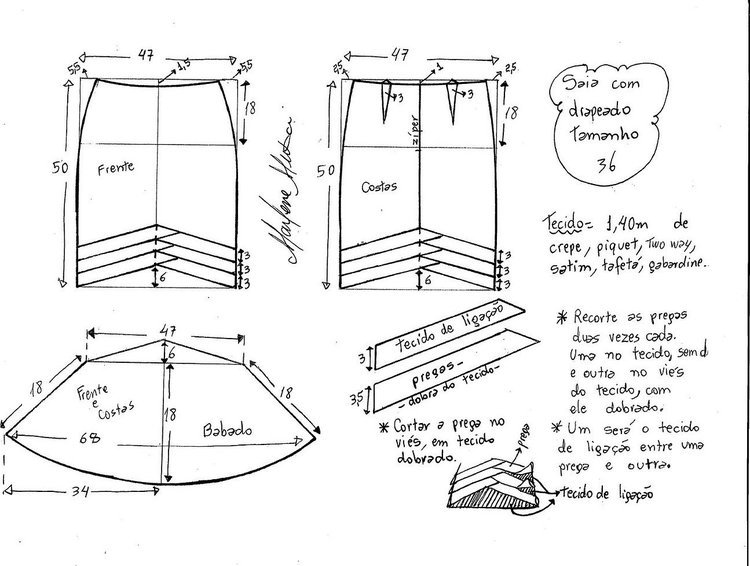 47
5,5
1,5
5,5
18
50
Frente
6
3
3
3
Marlene Mukai
47
2,5
1
2,5
3
3
18
zíper
50
Costas
6
3
3
3
Saia com
drapeado
Tamanho
36
Tecido= 1,40m de
crepe, piquet, Two way,
satim, tafetá, gabardine.
47
6
18
18
Frente
e
Costas
18
68
Babado
34
tecido de ligação
3
pregas-
-dobra do tecido-
3,5
* Cortar a prega no
viés, em tecido
dobrado.
prega
tecido de ligação
* Recorte as pregas
duas vezes cada.
Uma no tecido,
e outra no viés
do tecido, com
ele dobrado.
* Um será o tecido
de ligação entre uma
prega e outra.